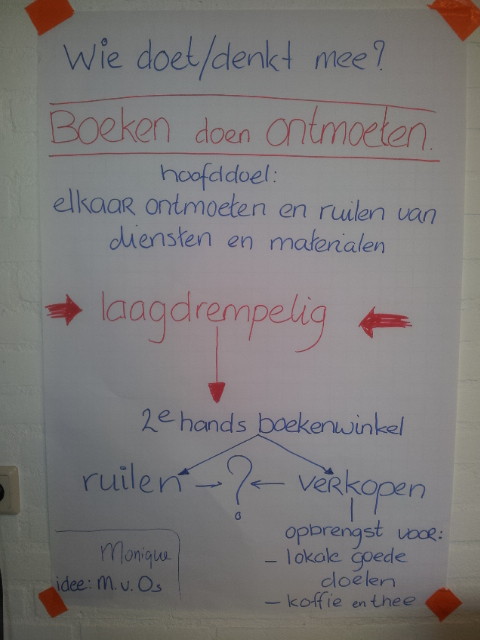 Wie doet/denkt mee?
Boeken doen ontmoeten.
hoofddoel:
elkaar ontmoeten en ruilen van
diensten en materialen
laagdrempelig
2e hands boekenwinkel
ruilen → ? ← verkopen
opbrengst voor:
- lokale goede
doelen
- koffie en thee
Monique
idee: M. v. Os